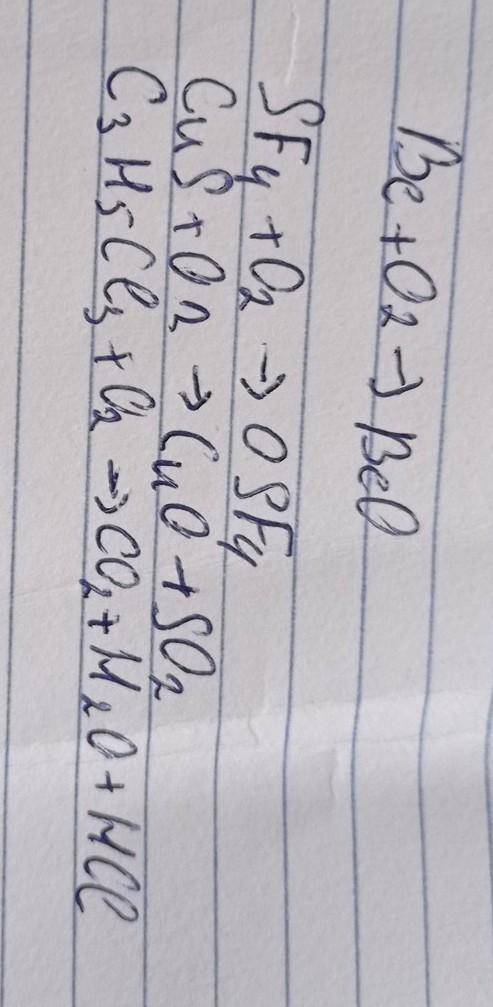 Be + O₂ → BeO
SF₄ + O₂ → OSF₄
CuS + O₂ → CuO + SO₂
C₃H₅Cl₃ + O₂ → CO₂ + H₂O + HCl